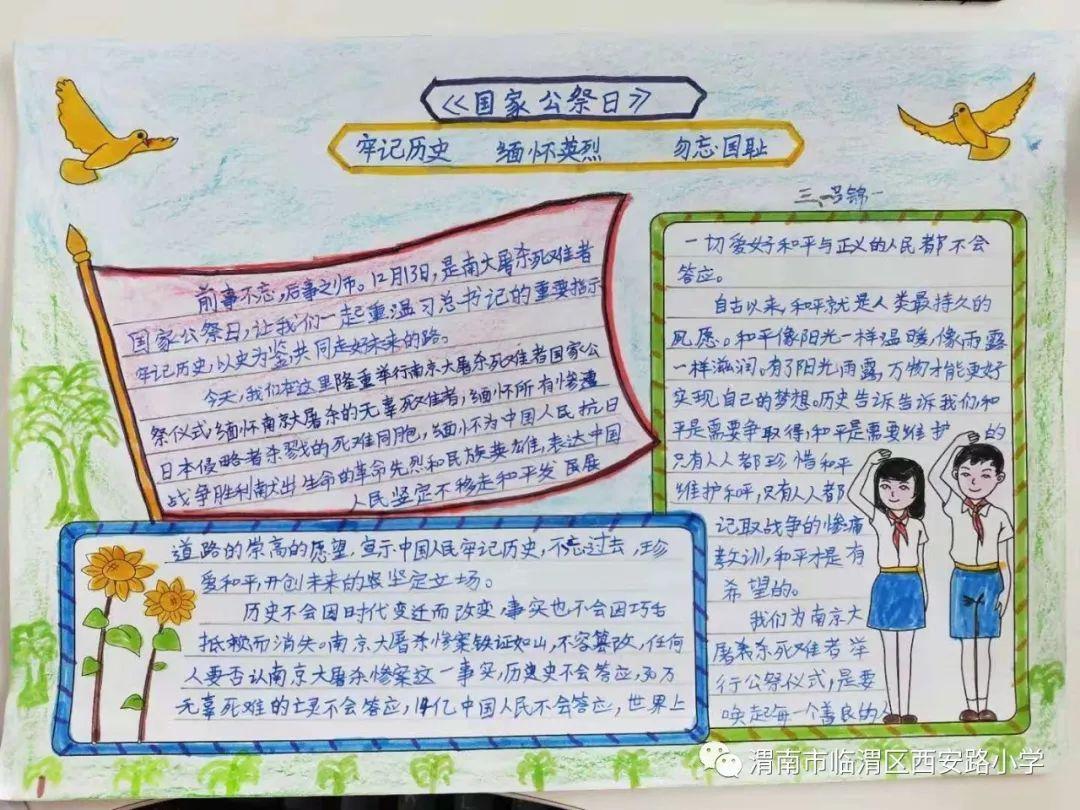 《国家公祭日》
牢记历史 缅怀英烈 勿忘国耻
三、一 吕锦一
前事不忘,后事之师。12月13日,是南大屠杀死难者
国家公祭日,让我们一起重温习总书记的重要指示
牢记历史,以史为鉴,共同走好未来的路。
今天,我们在这里隆重举行南京大屠杀死难者国家公
祭仪式,缅怀南京大屠杀的无辜死难者,缅怀所有惨遭
日本侵略者杀戮的死难同胞,缅怀为中国人民抗日
战争胜利献出生命的革命先烈和民族英雄,表达中国
人民坚定不移走和平发展
道路的崇高的愿望,宣示中国人民牢记历史,不忘过去,珍
爱和平,开创未来的坚定立场。
历史不会因时代变迁而改变,事实也不会因巧舌
抵赖而消失。南京大屠杀惨案铁证如山,不容篡改,任何
人要否认南京大屠杀惨案这一事实,历史史不会答应,30万
无辜死难的亡灵不会答应,14亿中国人民不会答应,世界上
一切爱好和平与正义的人民都不会
答应。
自古以来,和平就是人类最持久的
夙愿。和平像阳光一样温暖,像雨露
一样滋润。有了阳光雨露,万物才能更好
实现自己的梦想。历史告诉告诉我们,和
平是需要争取得,和平是需要维护的
只有人人都珍惜和平
维护和平,只有人人都
记取战争的惨痛
教训,和平才是有
希望的。
我们为南京大
屠杀死难者举
行公祭仪式,是要
唤起每一个善良的人
渭南市临渭区西安路小学